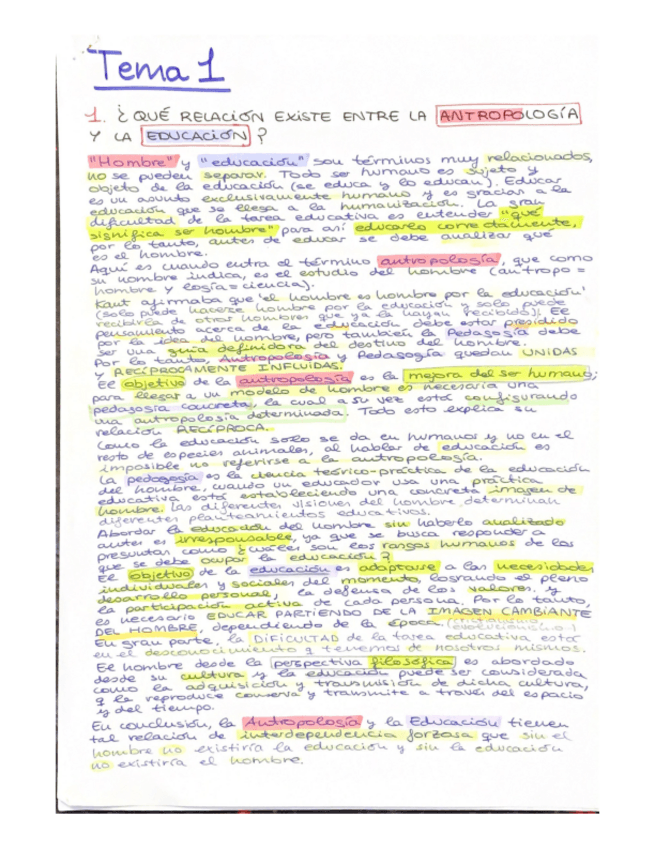 Tema 1
1. ¿QUÉ RELACIÓN EXISTE ENTRE LA ANTROPOLOGÍA
Y LA EDUCACIÓN?
"Hombre" y "educación" son términos muy relacionados,
no se pueden separar. Todo ser humano es sujeto y
objeto de la educación (se educa y lo educan). Educar
es un asunto exclusivamente humano y es gracias a la
educación que se llega a la humanización. La gran
dificultad de la tarea educativa es entender "qué
significa ser hombre" para así educarlo correctamente,
por lo tanto, antes de educar se debe analizar qué
es el hombre.
Aquí es cuando entra el término antropología, que como
su nombre indica, es el estudio del hombre (antropo =
hombre y logía = ciencia).
Kant afirmaba que 'el hombre es hombre por la educación'
(solo puede hacerse hombre por la educación y solo puede
recibirla de otros hombres que ya la hayan recibido). El
pensamiento acerca de la educación debe estar presidido
por la idea del hombre, pero también la Pedagogía debe
ser una guía definidora del destino del hombre.
Por lo tanto, Antropología y Pedagogía quedan UNIDAS
y RECÍPROCAMENTE INFLUIDAS.
El objetivo de la antropología es la mejora del ser humano;
para llegar a un modelo de hombre es necesaria una
pedagogía concreta, la cual a su vez está configurando
una antropología determinada. Todo esto explica su
relación RECÍPROCA.
Como la educación solo se da en humanos y no en el
resto de especies animales, al hablar de educación es
imposible no referirse a la antropología.
La pedagogía es la ciencia teórico-práctica de la educación
del hombre, cuando un educador usa una práctica
educativa está estableciendo una concreta imagen de
hombre. Las diferentes visiones del hombre determinan
diferentes planteamientos educativos.
Abordar la educación del hombre sin haberlo analizado
antes es irresponsable, ya que se busca responder a
preguntas como ¿cuáles son los rasgos humanos de los
que se debe ocupar la educación?
El objetivo de la educación es adaptarse a las necesidades
individuales y sociales del momento, logrando el pleno
desarrollo personal, la defensa de los valores y
la participación activa de cada persona. Por lo tanto,
es necesario EDUCAR PARTIENDO DE LA IMAGEN CAMBIANTE
DEL HOMBRE, dependiendo de la época.
En gran parte, la DIFICULTAD de la tarea educativa está
en el desconocimiento q tenemos de nosotros mismos.
El hombre desde la perspectiva filosófica es abordado
desde su cultura y la educación puede ser considerada
como la adquisición y transmisión de dicha cultura,
q la reproduce conserva y transmite a través del espacio
y del tiempo.
En conclusión, la Antropología y la Educación tienen
tal relación de interdependencia forzosa que sin el
hombre no existiría la educación y sin la educación
no existiría el hombre.